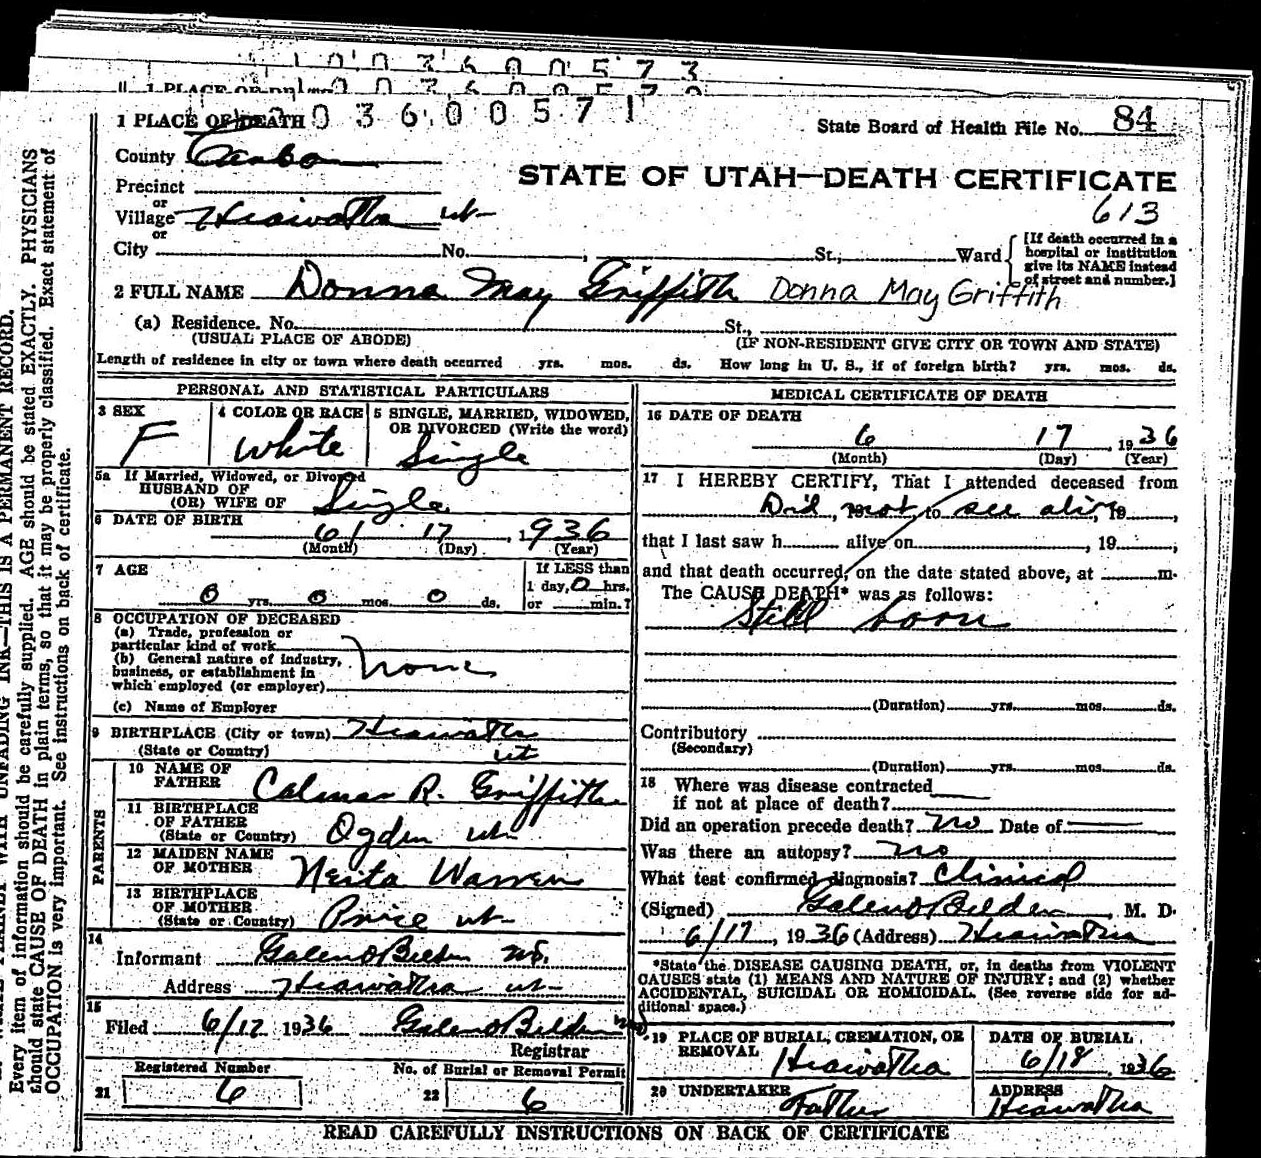 1 0 0 3 6 0 0 5 7 3
1 PLACE OF DEATH 0 3 6 0 0 5 7 1
State Board of Health File No. 84
County Carbon
STATE OF UTAH—DEATH CERTIFICATE
Precinct
613
or
Village Hiawatha ut
or
City No. , St., Ward
[If death occurred in a hospital or institution give its NAME instead of street and number.]
2 FULL NAME Donna May Griffith Donna May Griffith
(a) Residence. No. St.,
(USUAL PLACE OF ABODE) (IF NON-RESIDENT GIVE CITY OR TOWN AND STATE)
Length of residence in city or town where death occurred yrs. mos. ds. How long in U. S., if of foreign birth? yrs. mos. ds.
PERSONAL AND STATISTICAL PARTICULARS
3 SEX F
4 COLOR OR RACE White
5 SINGLE, MARRIED, WIDOWED, OR DIVORCED (Write the word) Single
5a If Married, Widowed, or Divorced
HUSBAND OF
(OR) WIFE OF Single
6 DATE OF BIRTH
6 17 , 1936
(Month) (Day) (Year)
7 AGE
0 yrs. 0 mos. 0 ds.
If LESS than
1 day, 0 hrs.
or min.?
8 OCCUPATION OF DECEASED
(a) Trade, profession or
particular kind of work
(b) General nature of industry,
business, or establishment in
which employed (or employer)
none
(c) Name of Employer
9 BIRTHPLACE (City or town) Hiawatha
(State or Country) ut
PARENTS
10 NAME OF
FATHER Calmar R. Griffith
11 BIRTHPLACE
OF FATHER
(State or Country) Ogden ut
12 MAIDEN NAME
OF MOTHER Neita Warren
13 BIRTHPLACE
OF MOTHER
(State or Country) Price ut
14
Informant Galen O Belden MD.
Address Hiawatha ut
15
Filed 6/17 1936 Galen O Belden MD
Registrar
Registered Number
21 6
No. of Burial or Removal Permit
22 6
MEDICAL CERTIFICATE OF DEATH
16 DATE OF DEATH
6 17 , 1936
(Month) (Day) (Year)
17 I HEREBY CERTIFY, That I attended deceased from
Did , not , to see alive, 19 ,
that I last saw h alive on , 19 ;
and that death occurred, on the date stated above, at m.
The CAUSE DEATH* was as follows:
Still born
(Duration) yrs. mos. ds.
Contributory
(Secondary)
(Duration) yrs. mos. ds.
18 Where was disease contracted
if not at place of death?
Did an operation precede death? no Date of
Was there an autopsy? no
What test confirmed diagnosis? Clinical
(Signed) Galen O Belden , M. D.
6/17 , 1936 (Address) Hiawatha
*State the DISEASE CAUSING DEATH, or, in deaths from VIOLENT
CAUSES state (1) MEANS AND NATURE OF INJURY; and (2) whether
ACCIDENTAL, SUICIDAL OR HOMICIDAL. (See reverse side for ad-
ditional space.)
19 PLACE OF BURIAL, CREMATION, OR
REMOVAL Hiawatha
DATE OF BURIAL
6/18 , 1936
20 UNDERTAKER
Father
ADDRESS
Hiawatha
READ CAREFULLY INSTRUCTIONS ON BACK OF CERTIFICATE
UNFADING INK—THIS IS A PERMANENT RECORD.
Every item of information should be carefully supplied. AGE should be stated EXACTLY. PHYSICIANS
should state CAUSE OF DEATH in plain terms, so that it may be properly classified. Exact statement of
OCCUPATION is very important. See instructions on back of certificate.